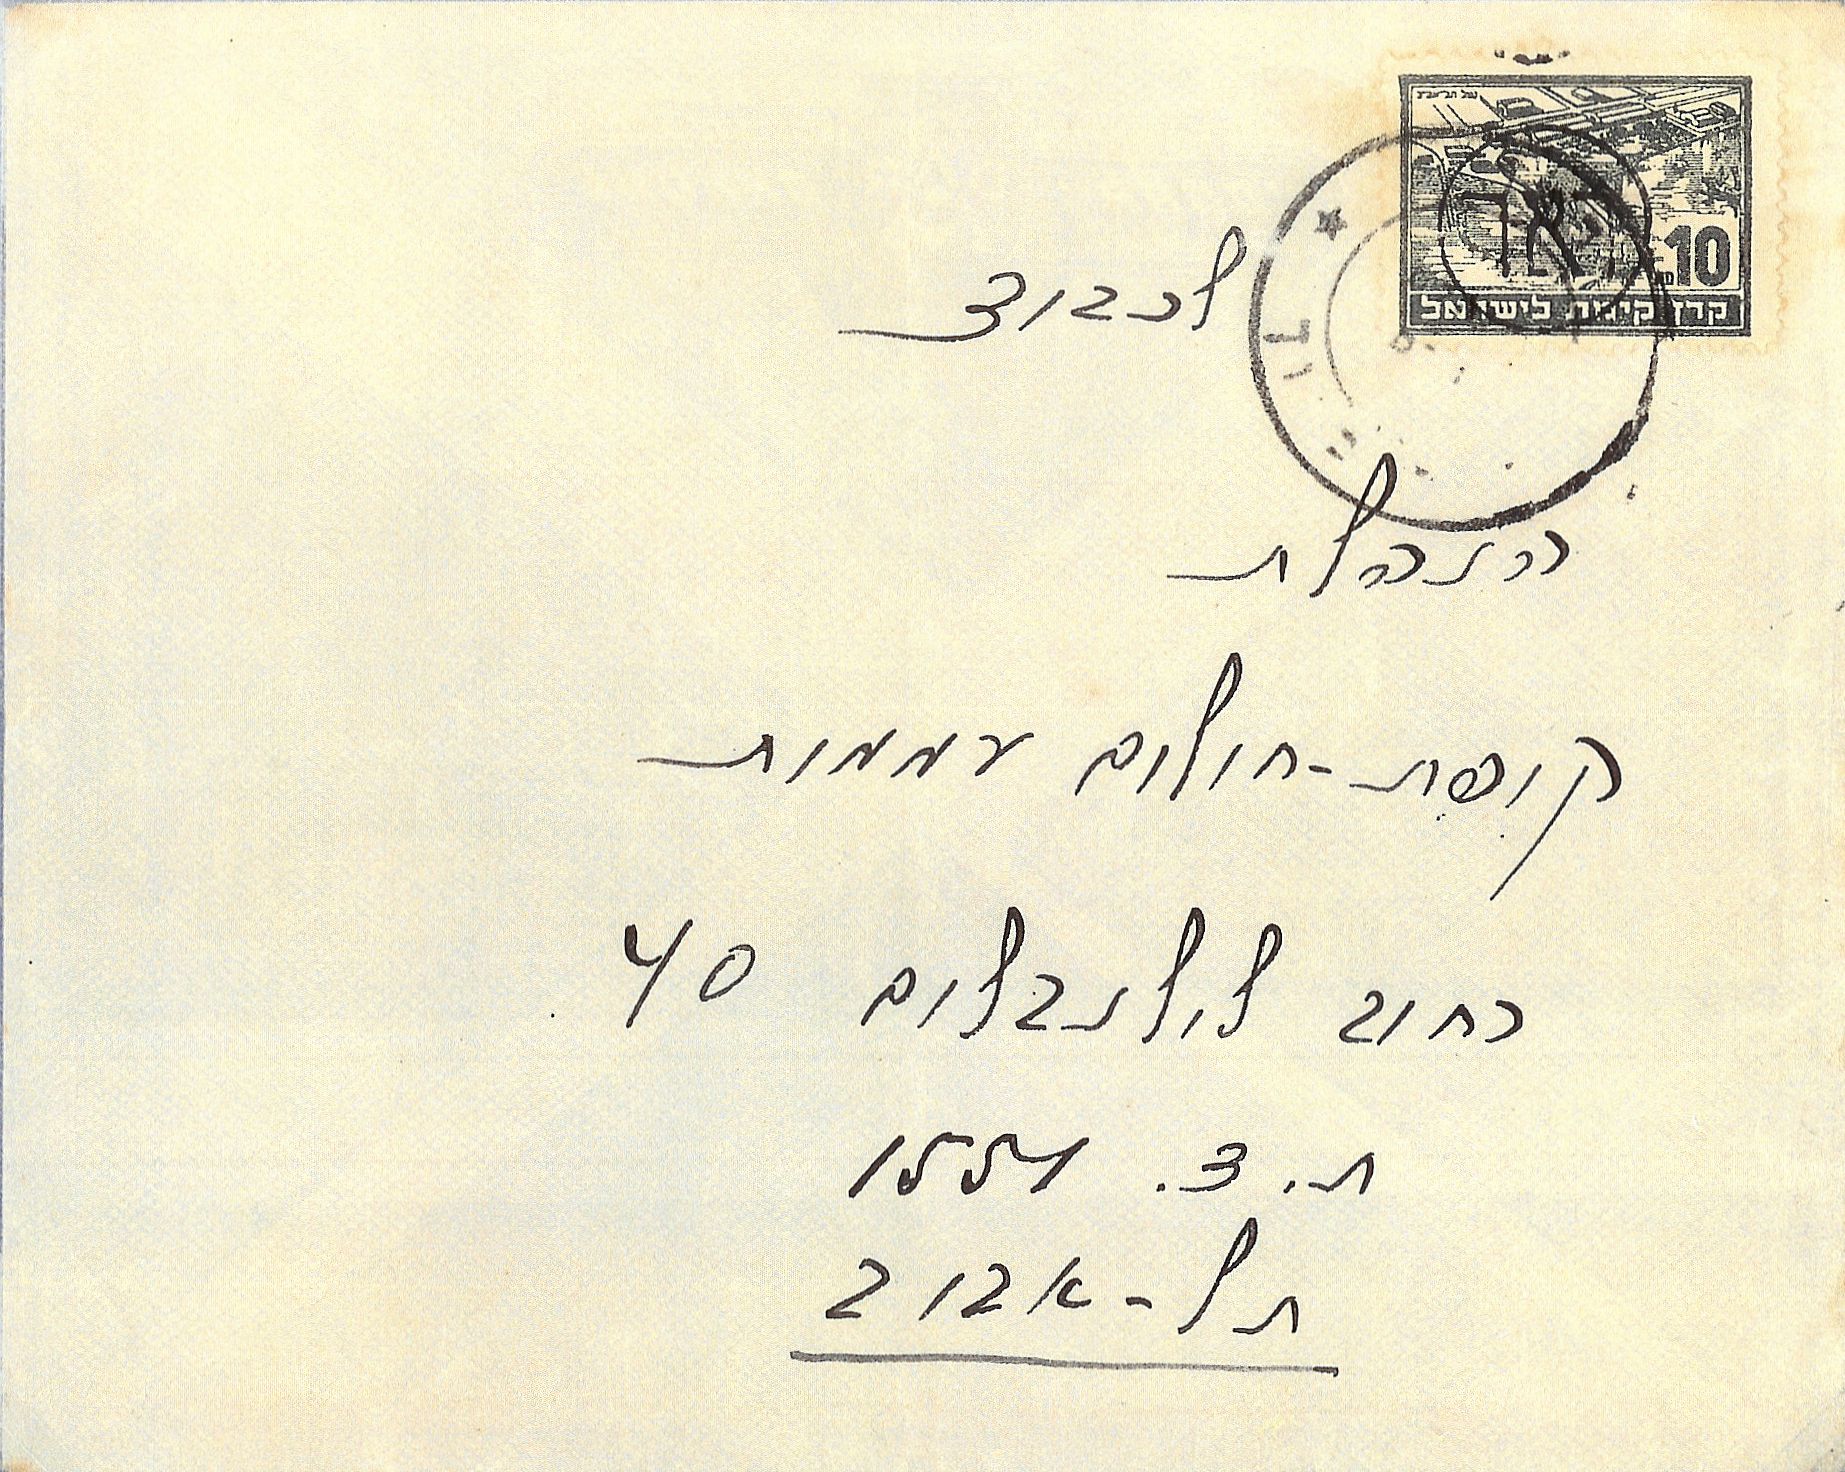 נמל תל-אביב
דאר
10
קרן קימת לישראל
לכבוד
הנהלת
קופת-חולים עממית
רחוב לילנבלום 40
ת. ד.
תל-אביב